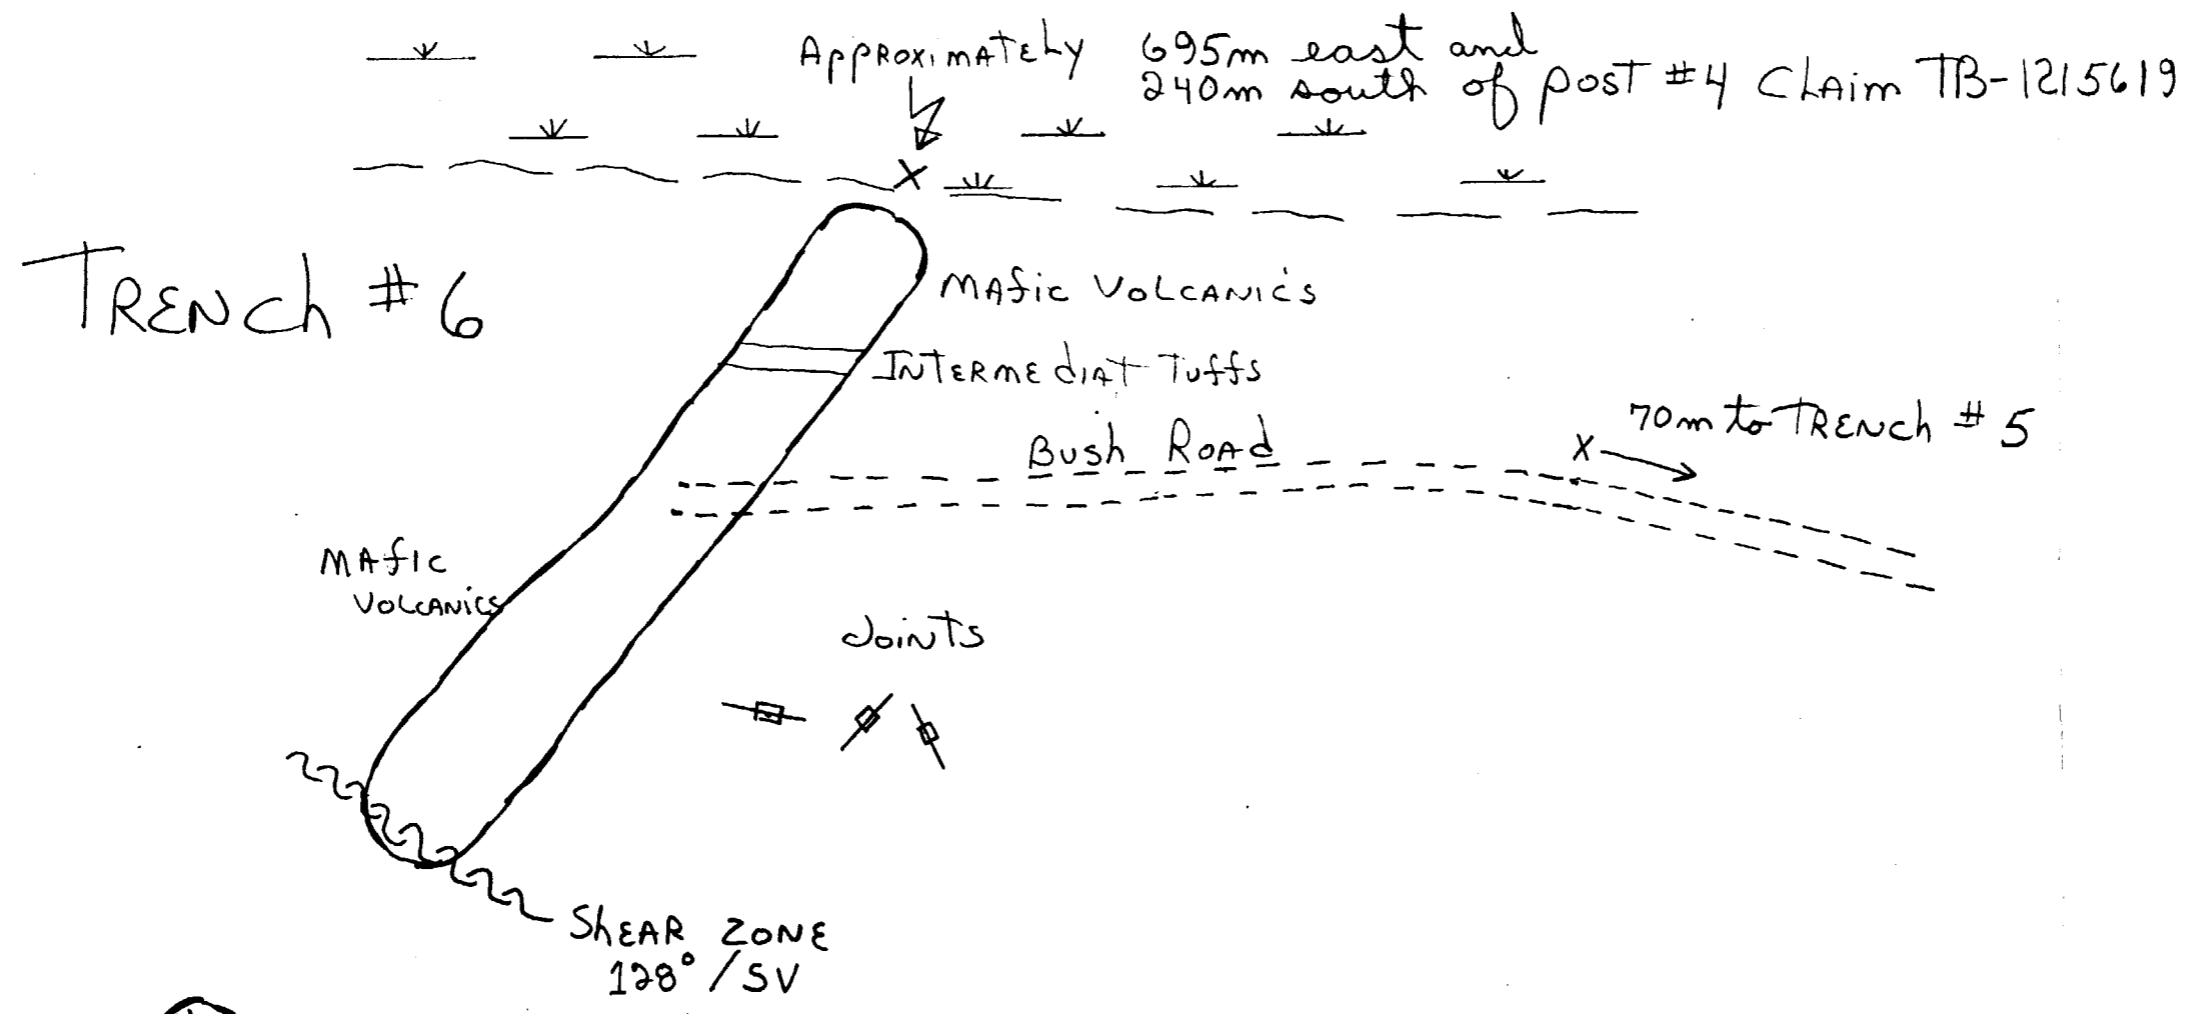 Approximately 695m east and
240m south of post #4 Claim TB-1215619
Trench #6
Mafic Volcanics
Intermediat Tuffs
70m to Trench #5
Bush Road
X
X
Mafic
Volcanics
Joints
Shear Zone
128°/SV